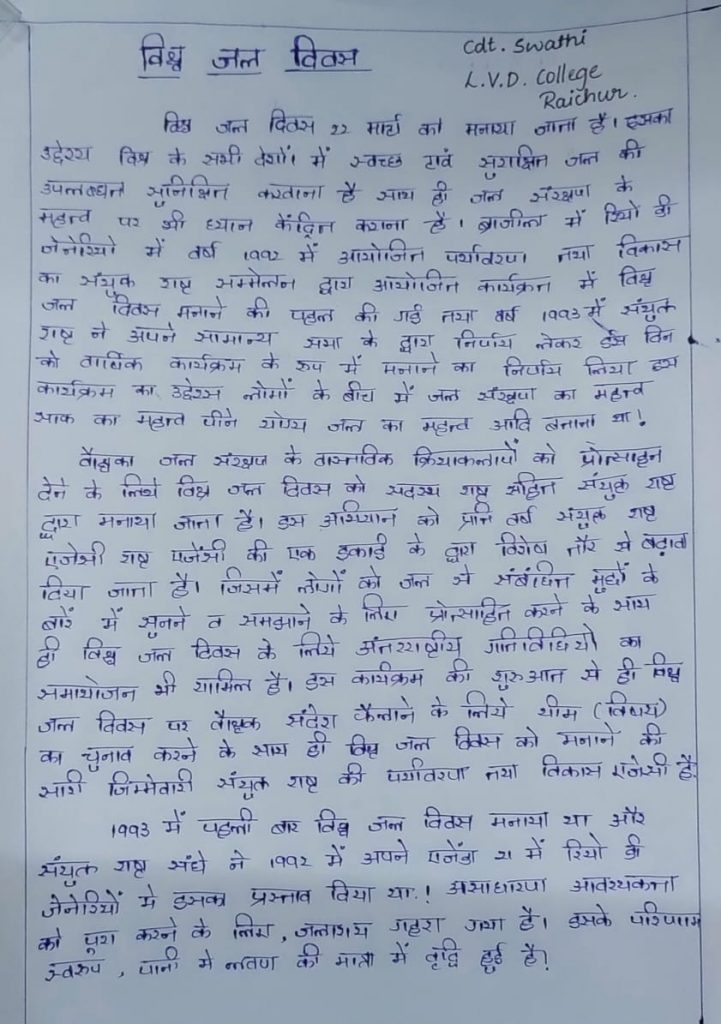 विश्व जल दिवस
Cdt. Swathi
L.V.D. College
Raichur.
विश्व जल दिवस 22 मार्च को मनाया जाता है। इसका
उद्देश्य विश्व के सभी देशों में स्वच्छ एवं सुरक्षित जल की
उपलब्धत सुनिश्चित करवाना है साथ ही जल संरक्षण के
महत्व पर भी ध्यान केंद्रित कराना है। ब्राजील में रियो डी
जेनेरियो में वर्ष 1992 में आयोजित पर्यावरण तथा विकास
का संयुक्त राष्ट्र सम्मेलन द्वारा आयोजित कार्यक्रम में विश्व
जल दिवस मनाने की पहल की गई तथा वर्ष 1993 में संयुक्त
राष्ट्र ने अपने सामान्य सभा के द्वारा निर्णय लेकर इस दिन
को वार्षिक कार्यक्रम के रूप में मनाने का निर्णय लिया इस
कार्यक्रम का उद्देश्य लोगों के बीच में जल संरक्षण का महत्व
साफ का महत्व पीने योग्य जल का महत्व आदि बताना था!
वैश्विका जल संरक्षण के वास्तविक क्रियाकलापों को प्रोत्साहन
देने के लिये विश्व जल दिवस को सदस्य राष्ट्र सहित संयुक्त राष्ट्र
द्वारा मनाया जाता है। इस अभियान को प्रति वर्ष संयुक्त राष्ट्र
एजेंसी राष्ट्र एजेंसी की एक इकाई के द्वारा विशेष तौर से बढ़ावा
दिया जाता है। जिसमें लोगों को जल से संबंधित मुद्दों के
बारें में सुनने व समझाने के लिए प्रोत्साहित करने के साथ
ही विश्व जल दिवस के लिये अंतरराष्ट्रीय गतिविधियो का
समायोजन भी शामिल है। इस कार्यक्रम की शुरुआत से ही विश्व
जल दिवस पर वैश्विक संदेश फैलाने के लिये थीम (विषय)
का चुनाव करने के साथ ही विश्व जल दिवस को मनाने की
सारी जिम्मेवारी संयुक्त राष्ट्र की पर्यावरण तथा विकास एजेंसी है
1993 में पहली बार विश्व जल दिवस मनाया था और
संयुक्त राष्ट्र संघे ने 1992 में अपने एजेंडा 21 में रियो डी
जेनेरियों मे इसका प्रस्ताव दिया था.! असाधारण आवश्यकता
को पूरा करने के लिए, जलाशय गहरा गया है। इसके परिणाम
स्वरूप, पानी मे लवण की मात्रा में वृद्धि हुई है?